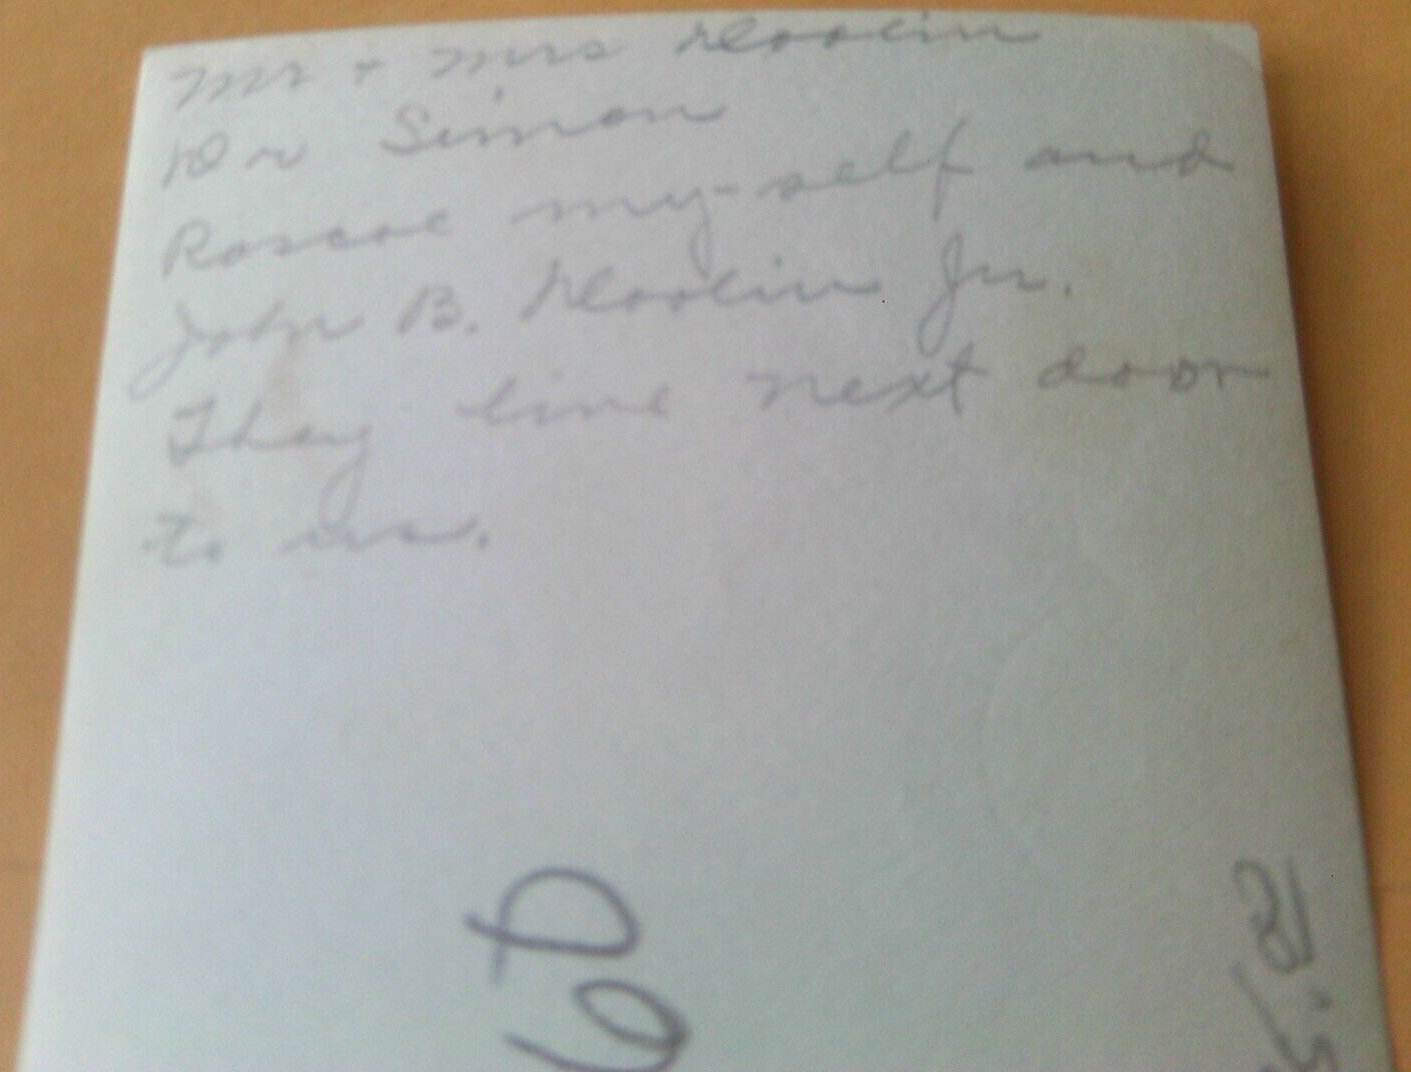 Mr + Mrs Doolin
Dr Simon
Roscoe my-self and
John B. Doolin Jr.
They live next door
to us.